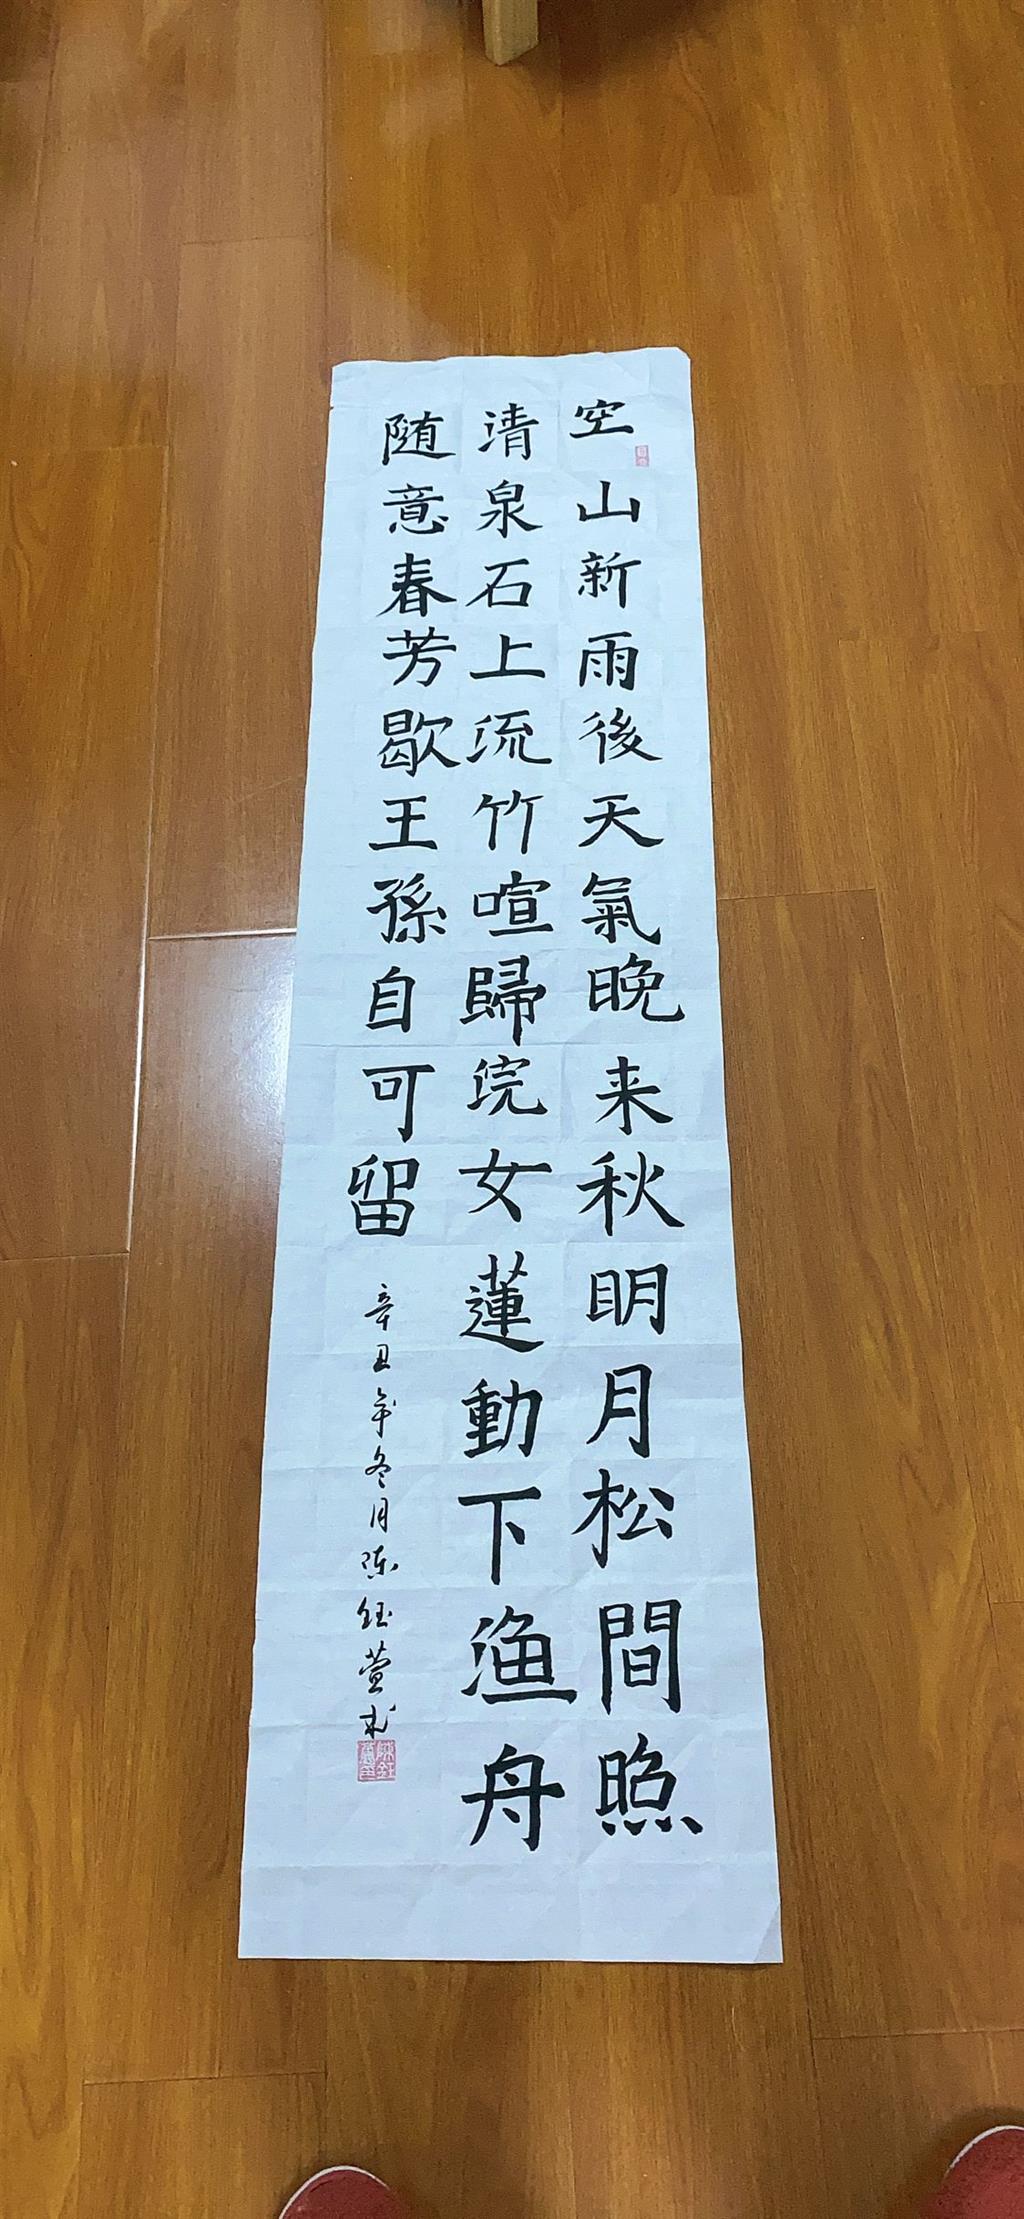 空山新雨後天氣晚来秋明月松間照
清泉石上流竹喧歸浣女蓮動下渔舟
随意春芳歇王孫自可留
辛丑年冬月陈钰萱书